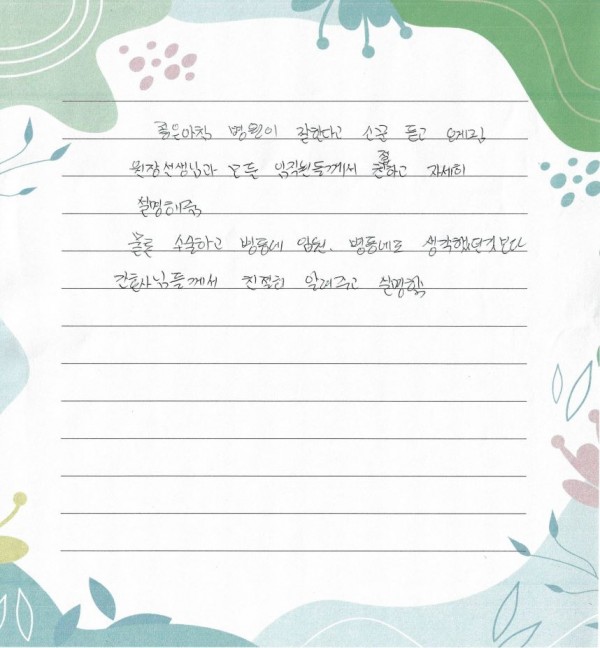 좋은아침 병원이 잘한다고 소문 듣고 오게됨
원장선생님과 모든 임직원들께서 친절하고 자세히
설명해줌
물론 수술하고 병동에 입원. 병동네도 생각했던것보다
간호사님들께서 친절히 알려주고 설명함